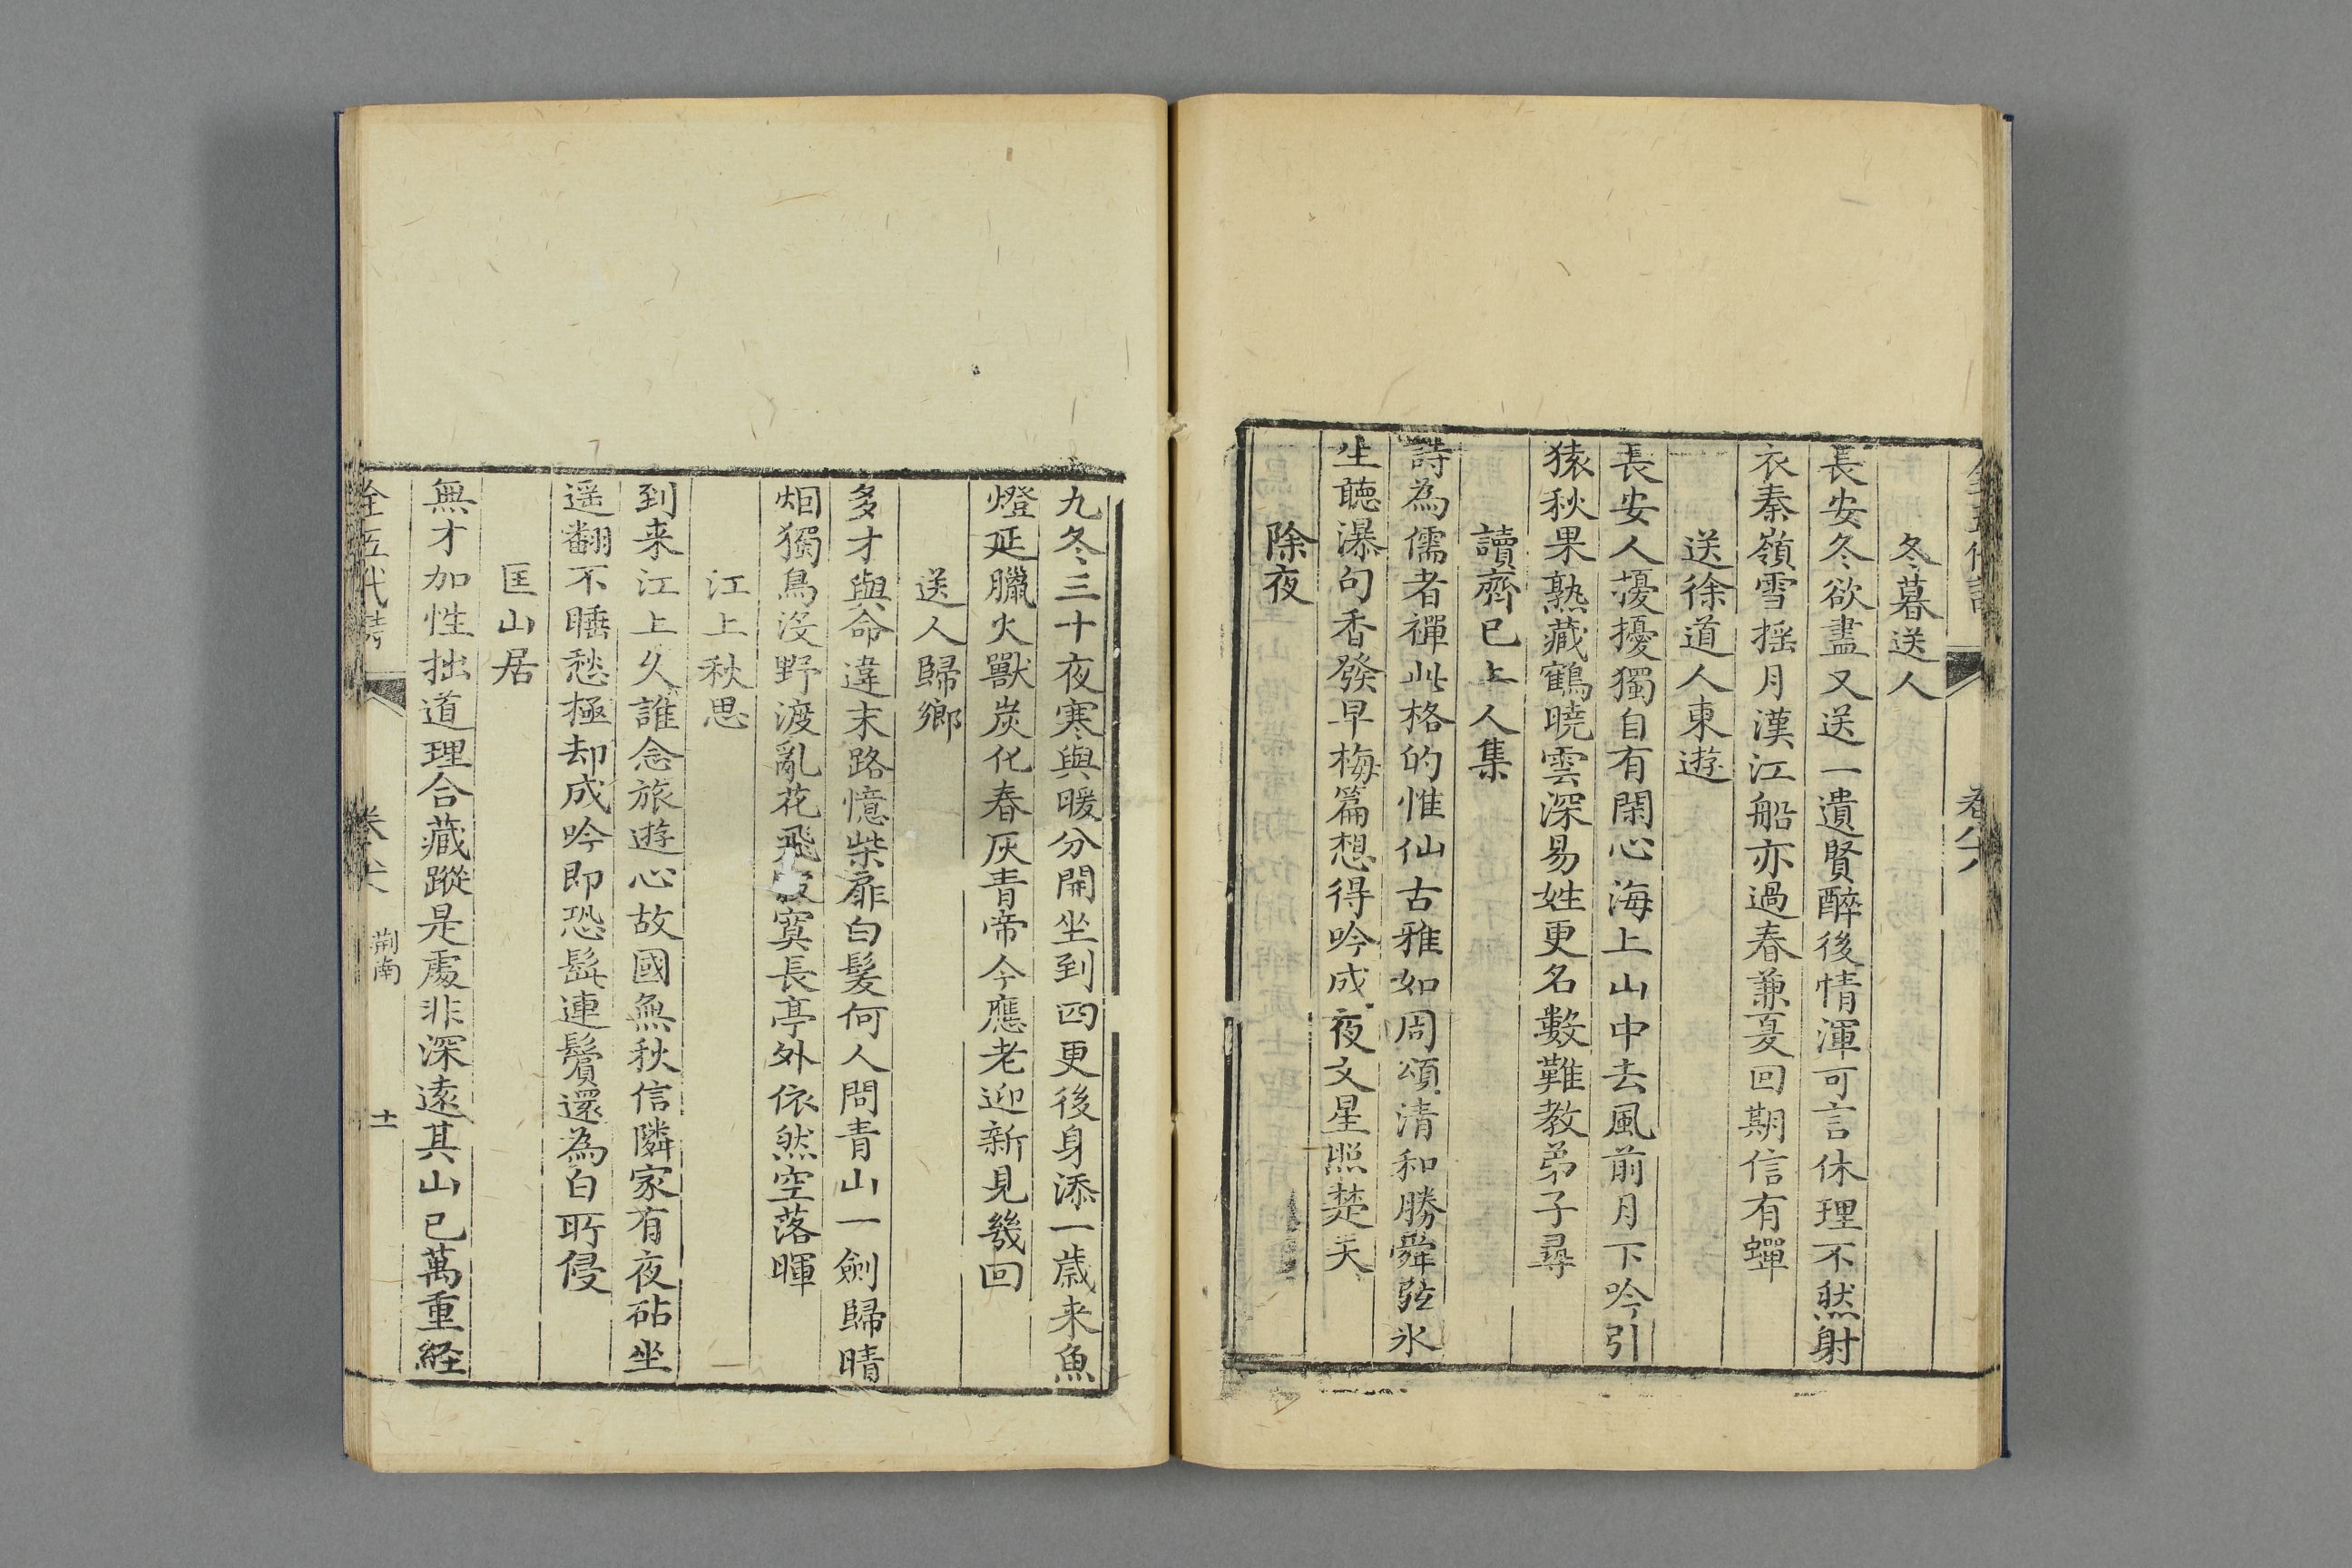 冬暮送人
長安冬欲盡又送一遺賢醉後情渾可言休理不然射
衣秦嶺雪揺月漢江船亦過春兼夏回期信有蟬
送徐道人東遊
長安人擾擾獨自有閑心海上山中去風前月下吟引
猿秋果熟藏鶴曉雲深易姓更名數難教弟子尋
讀齊已上人集
詩為儒者禪此格的惟仙古雅如周頌清和勝舜弦氷
生聽瀑句香發早梅篇想得吟成夜文星照楚天
除夜
九冬三十夜寒與暖分開坐到四更後身添一歲来魚
燈延臘火獸炭化春灰青帝今應老迎新見幾回
送人歸鄉
多才與命違末路憶柴扉白髪何人問青山一劍歸晴
烟獨鳥没野渡亂花飛寂寞長亭外依然空落暉
江上秋思
到来江上久誰念旅遊心故國無秋信隣家有夜砧坐
遥翻不睡愁極却成吟即恐髭連鬢還為白所侵
匡山居
無才加性拙道理合藏蹤是處非深遠其山已萬重経
全五代詩
卷六
荆南
十一